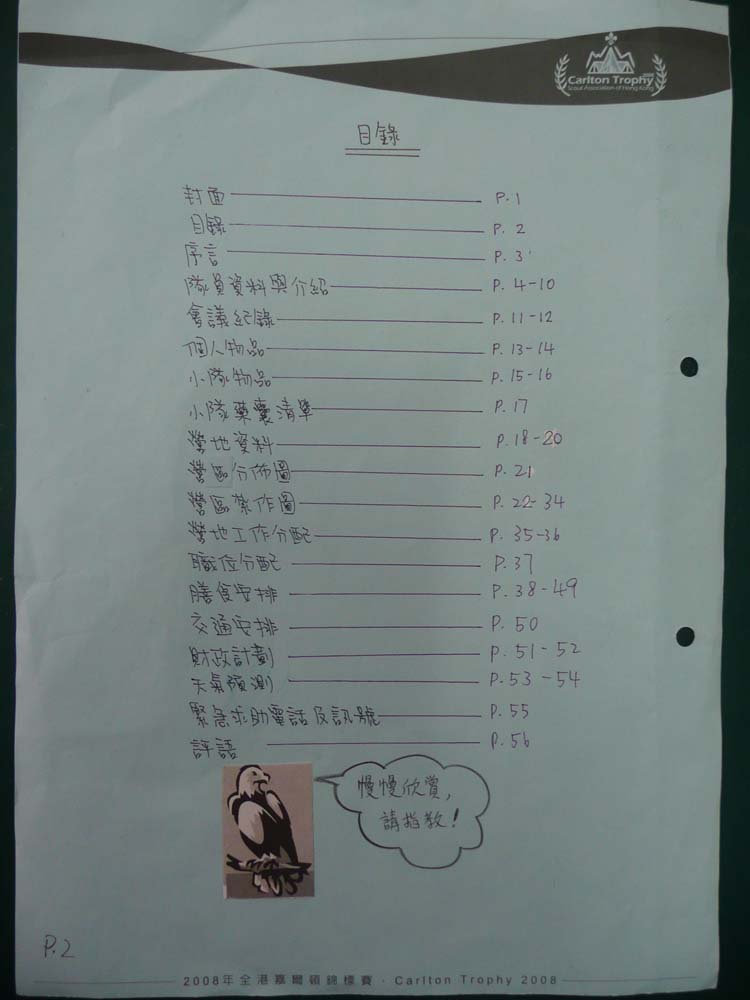 Carlton Trophy
Scout Association of Hong Kong
目錄
封面 P.1
目錄 P.2
序言 P.3
隊員資料與介紹 P.4-10
會議紀錄 P.11-12
個人物品 P.13-14
小隊物品 P.15-16
小隊藥囊清單 P.17
營地資料 P.18-20
營區分佈圖 P.21
營區紮作圖 P.22-34
營地工作分配 P.35-36
職位分配 P.37
膳食安排 P.38-49
交通安排 P.50
財政計劃 P.51-52
天氣預測 P.53-54
緊急求助電話及訊號 P.55
評語 P.56
慢慢欣賞,
請指教!
P.2
2008年全港嘉爾頓錦標賽·Carlton Trophy 2008